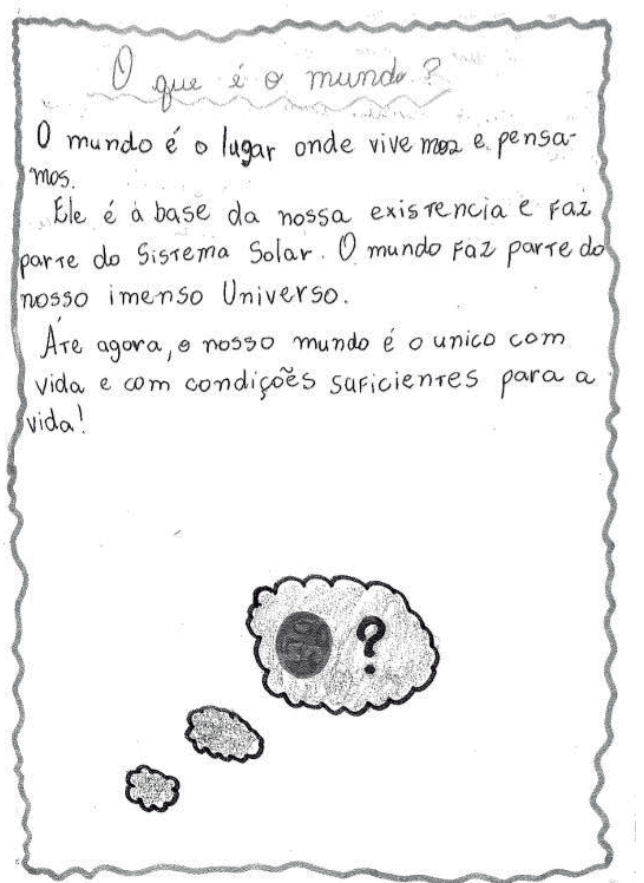 O que é o mundo?
O mundo é o lugar onde vivemos e pensa-
mos.
Ele é a base da nossa existencia e faz
parte do Sistema Solar. O mundo faz parte do
nosso imenso Universo.
Áte agora, o nosso mundo é o unico com
vida e com condições suficientes para a
vida!
?